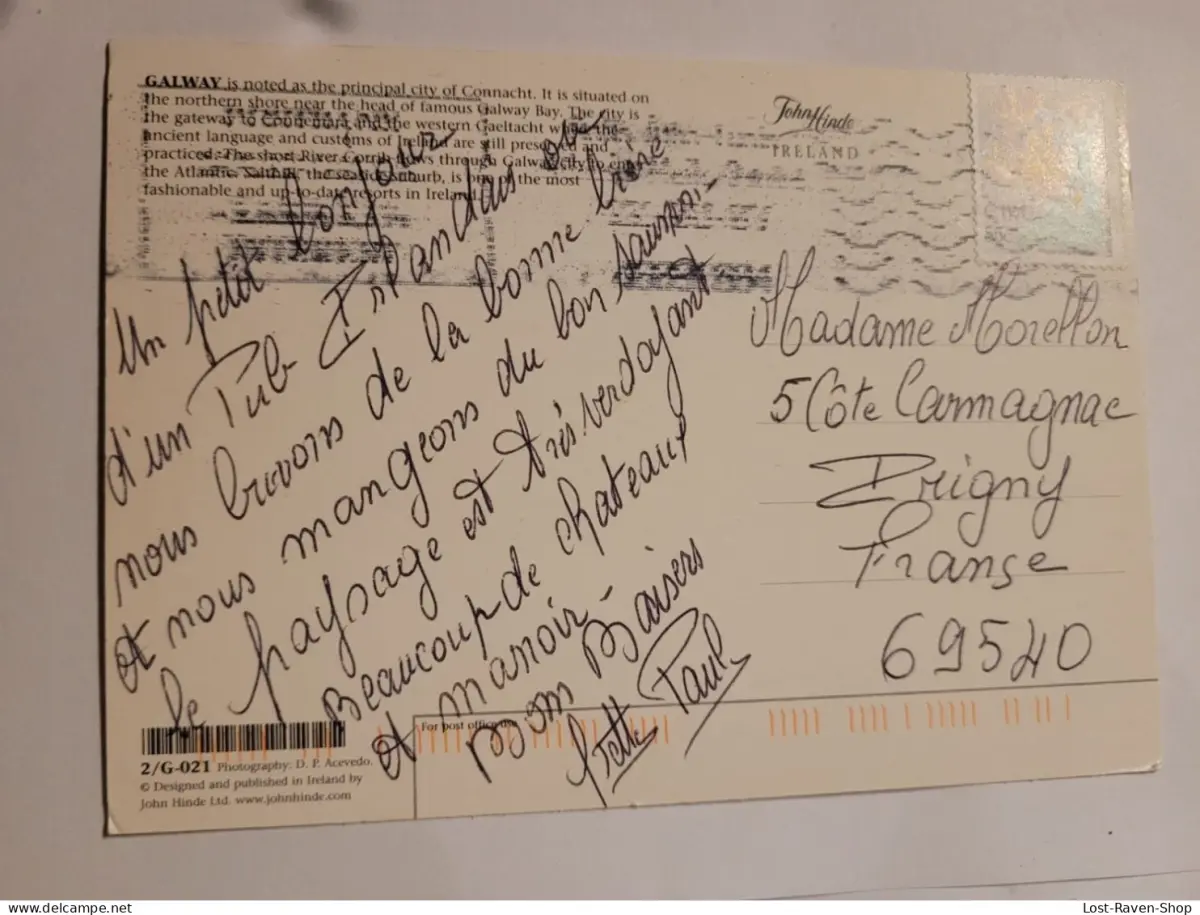 GALWAY is noted as the principal city of Connacht. It is situated on
the northern shore near the head of famous Galway Bay. The city is
the gateway to Connemara and the western Gaeltacht where the
ancient language and customs of Ireland are still preserved and
practiced. The short River Corrib flows through Galway City to enter
the Atlantic. Salthill, the seaside suburb, is one of the most
fashionable and up-to-date resorts in Ireland.
John Hinde
IRELAND
Un petit bonjour
d'un Pub Irlandais ou
nous buvons de la bonne bière
et nous mangeons du bon saumon.
le paysage est très verdoyant
Beaucoup de chateaux
et manoir.
Bons Baisers
Paul
Madame Morellon
5 Côte Carmagnac
Irigny
Franse
69540
For post office use
2/G-021 Photography: D. P. Acevedo.
© Designed and published in Ireland by
John Hinde Ltd. www.johnhinde.com
Lost-Raven-Shop